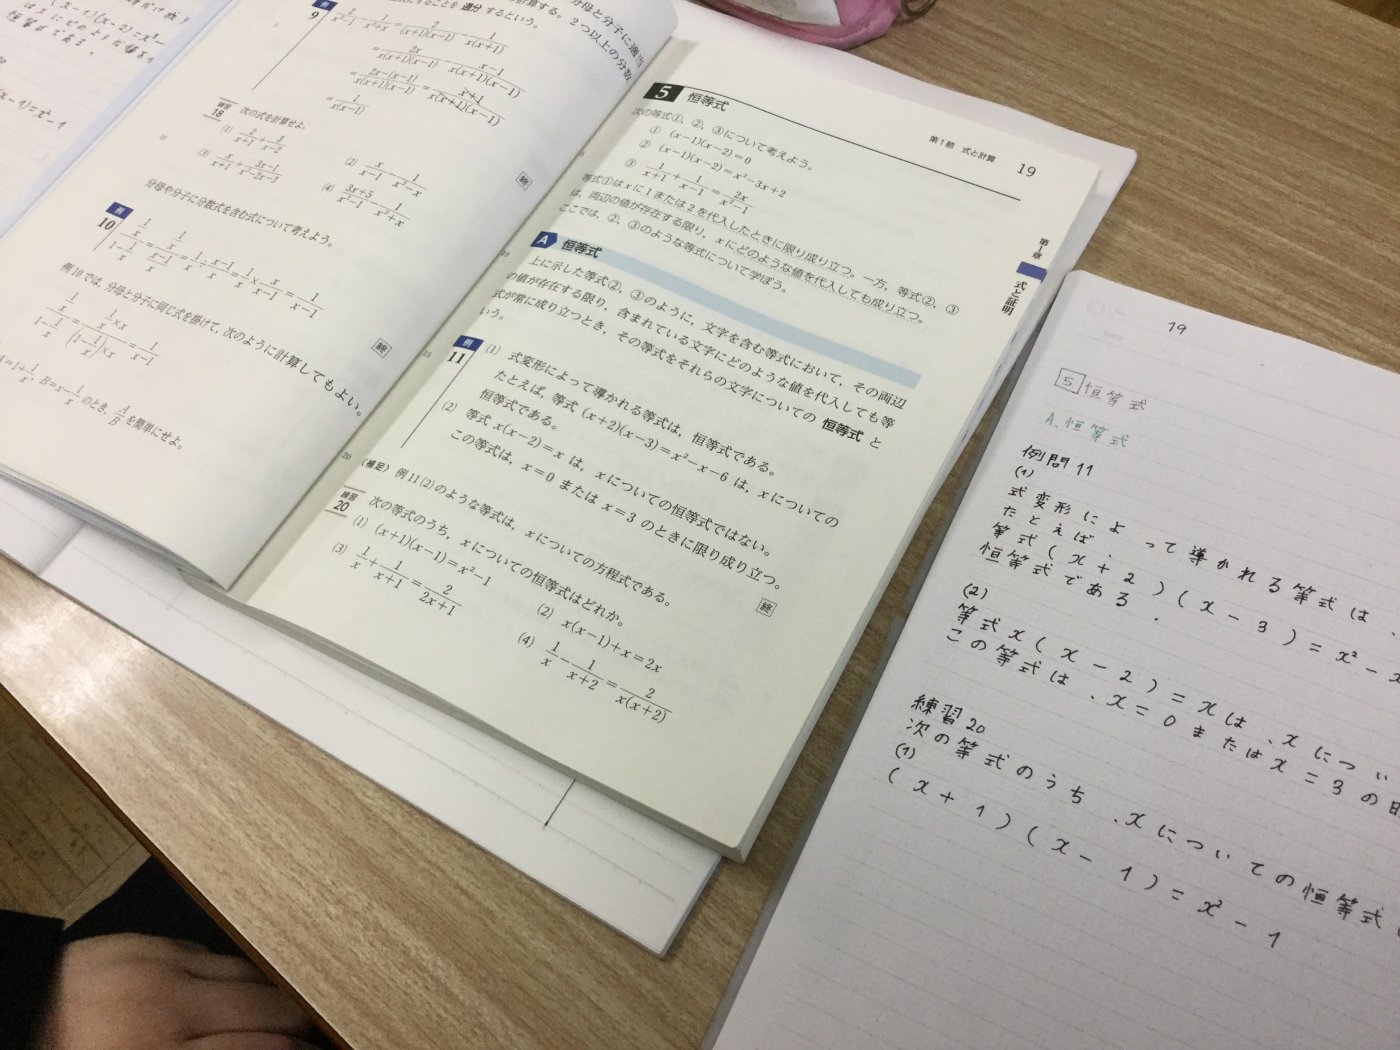 例
9
2/(x²−1) − 1/(x²+x) = 2/((x+1)(x−1)) − 1/(x(x+1))
= 2x/(x(x+1)(x−1)) − (x−1)/(x(x+1)(x−1))
= (2x−(x−1))/(x(x+1)(x−1)) = (x+1)/(x(x+1)(x−1))
= 1/(x(x−1))
終
練習
18
次の式を計算せよ。
(1)
(2) x/(x−1) − 1/(x²−x)
(3) x/(x+1) + (3x−1)/(x²−2x−3)
(4) (3x+5)/(x²−1) − 1/(x²+x)
分母や分子に分数式を含む式について考えよう。
例
10
終
例10では，分母と分子に同じ式を掛けて，次のように計算してもよい。
のとき，A/B を簡単にせよ。
第1節 式と計算 19
5 恒等式
次の等式①，②，③について考えよう。
① (x−1)(x−2)=0
② (x−1)(x−2)=x²−3x+2
③ 1/(x+1) + 1/(x−1) = 2x/(x²−1)
等式①はxに1または2を代入したときに限り成り立つ。一方，等式②，③
は，両辺の値が存在する限り，xにどのような値を代入しても成り立つ。
ここでは，②，③のような等式について学ぼう。
第1章 式と証明
A 恒等式
上に示した等式②，③のように，文字を含む等式において，その両辺
の値が存在する限り，含まれている文字にどのような値を代入しても等
式が常に成り立つとき，その等式をそれらの文字についての 恒等式 と
いう。
例
11
(1) 式変形によって導かれる等式は，恒等式である。
たとえば，等式 (x+2)(x−3)=x²−x−6 は，xについての
恒等式である。
(2) 等式 x(x−2)=x は，xについての恒等式ではない。
この等式は，x=0 または x=3 のときに限り成り立つ。
終
〈補足〉 例11(2)のような等式は，xについての方程式である。
練習
20
次の等式のうち，xについての恒等式はどれか。
(1) (x+1)(x−1)=x²−1
(2) x(x−1)+x=2x
(3) 1/x + 1/(x+1) = 2/(2x+1)
(4) 1/x − 1/(x+2) = 2/(x(x+2))
19
5 恒等式
A. 恒等式
例問11
(1)
式変形によって導かれる等式は
たとえば、
等式(x+2)(x−3)=x²−x
恒等式である.
(2)
等式x(x−2)=xは、xについ
この等式は、x=0またはx=3の
練習20
次の等式のうち、xについての恒等式
(1)
(x+1)(x−1)=x²−1